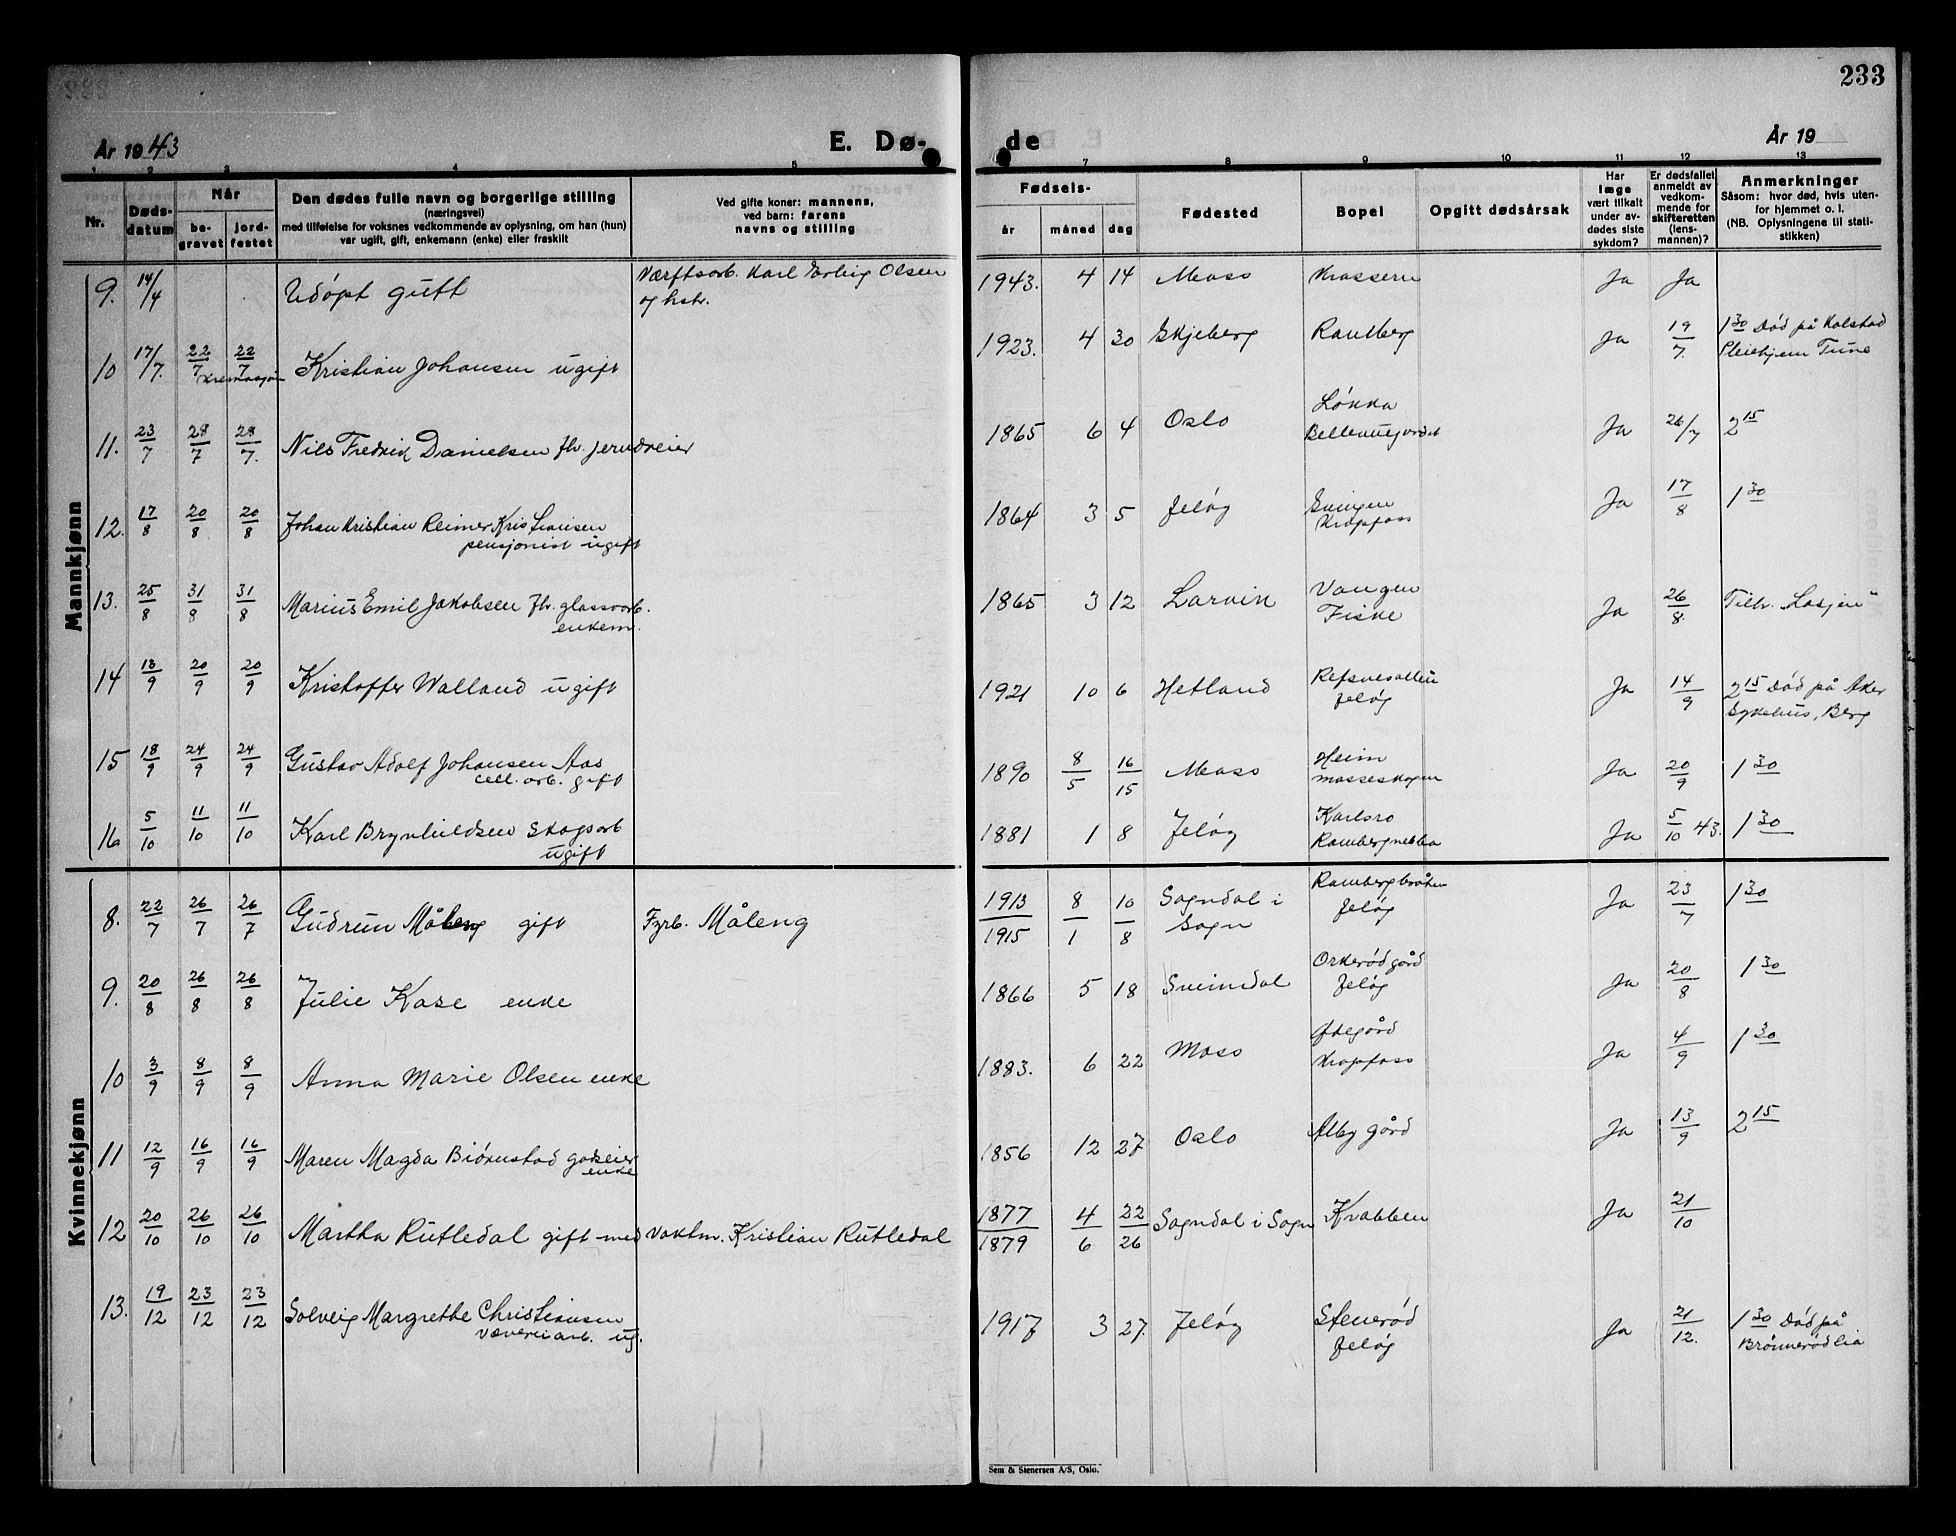 233
År 1943
E. Dø-
de
År 19
1 2 3 4 5 7 8 9 10 11 12 13
Nr.
Døds-
datum
Når
be-
gravet
jord-
festet
Den dødes fulle navn og borgerlige stilling
(næringsvei)
med tilføielse for voksnes vedkommende av oplysning, om han (hun)
var ugift, gift, enkemann (enke) eller fraskilt
Ved gifte koner: mannens,
ved barn: farens
navns og stilling
Fødsels-
år
måned
dag
Fødested
Bopel
Opgitt dødsårsak
Har
læge
vært tilkalt
under av-
dødes siste
sykdom?
Er dødsfallet
anmeldt av
vedkom-
mende for
skifteretten
(lens-
mannen)?
Anmerkninger
Såsom: hvor død, hvis uten-
for hjemmet o. l.
(NB. Oplysningene til stati-
stikken)
Mannkjønn
9. 14/4 Udøpt gutt Værftsarb. Karl Erling Olsen 1943. 4 14 Moss Krossern Ja Ja
og hstr.
10 17/7. 22/7 22/7 Kristian Johansen ugift 1923. 4 30 Skjeberg Ramberg Ja 19/7. 1 30 Død på Kolstad
Kremasjon
Pleiehjem Tune
11. 23/7 28/7 28/7. Nils Fredrik Danielsen fhv. jerndreier 1865 6 4 Oslo Løkka Ja 26/7 2 15
12. 17/8 20/8 20/8 Johan Kristian Reimer Kristiansen 1864 3 5 Jeløy Svingen Ja 17/8 1 30
pensjonist ugift Kropfoss
13. 25/8 31/8 31/8 Marius Emil Jakobsen fhv. glassarb. 1865 3 12 Larvik Vangen Ja 26/8. Tilh. "Losjen"
enkem. Fiske
14 13/9 20/9 20/9 Kristoffer Walland ugift 1921 10 6 Hetland Refsnesalleen Ja 14/9 2 15 Død på Aker
Jeløy Sykehus, Berg
15 18/9 24/9 24/9 Gustav Adolf Johansen Aas 1890 8/5 16/15 Moss Heim Ja 20/9 1 30
cell. arb. gift Mosseskogen
16 5/10 11/10 11/10 Karl Brynhildsen Skogsarb 1881 1 8 Jeløy Karlsro Ja 5/10 43. 1 30
ugift Rambergnebba
Kvinnekjønn
8. 22/7 26/7 26/7 Gudrun Måleng gift Fyrb. Måleng 1913/1915 8/1 10/8 Sogndal i Sogn Rambergbråten Jeløy Ja 23/7 1 30
9. 20/8 26/8 26/8 Julie Kase enke 1866 5 18 Svindal Orkerød gård Jeløy Ja 20/8 1 30
10 3/9 8/9 8/9 Anna Marie Olsen enke 1883. 6 22 Moss Kropfoss Ja 4/9 1 30
11 12/9 16/9 16/9 Maren Magda Biørnstad godseier 1856 12 27 Oslo Alby gård Ja 13/9 2 15
enke
12 20/10 26/10 26/10 Martha Rutledal gift med Vaktm. Kristian Rutledal 1877/1879 4/6 22/26 Sogndal i Sogn Krabben Ja 21/10
13. 19/12 23/12 23/12 Solveig Margrethe Christiansen 1917 3 27. Jeløy Stenerød Ja 21/12. 1 30 Død på
væveriarb. ug. Jeløy Brønnerødlia
Sem & Stenersen A/S, Oslo.